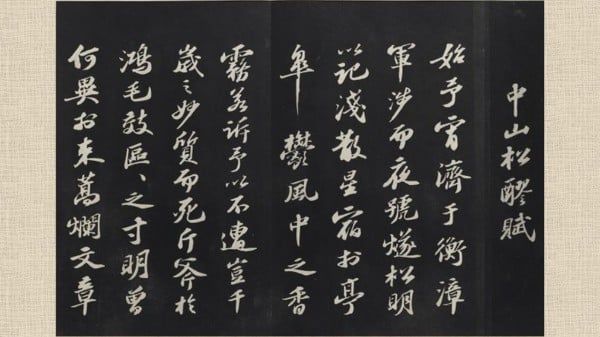 中山松醪賦
始予宵濟于衡漳
軍涉而夜號燧松明
以記淺散星宿於亭
皐鬱風中之香
霧若訴予以不遭豈千
歲之妙質而死斤斧於
鴻毛效區區之寸明曾
何異於束蒿爛文章